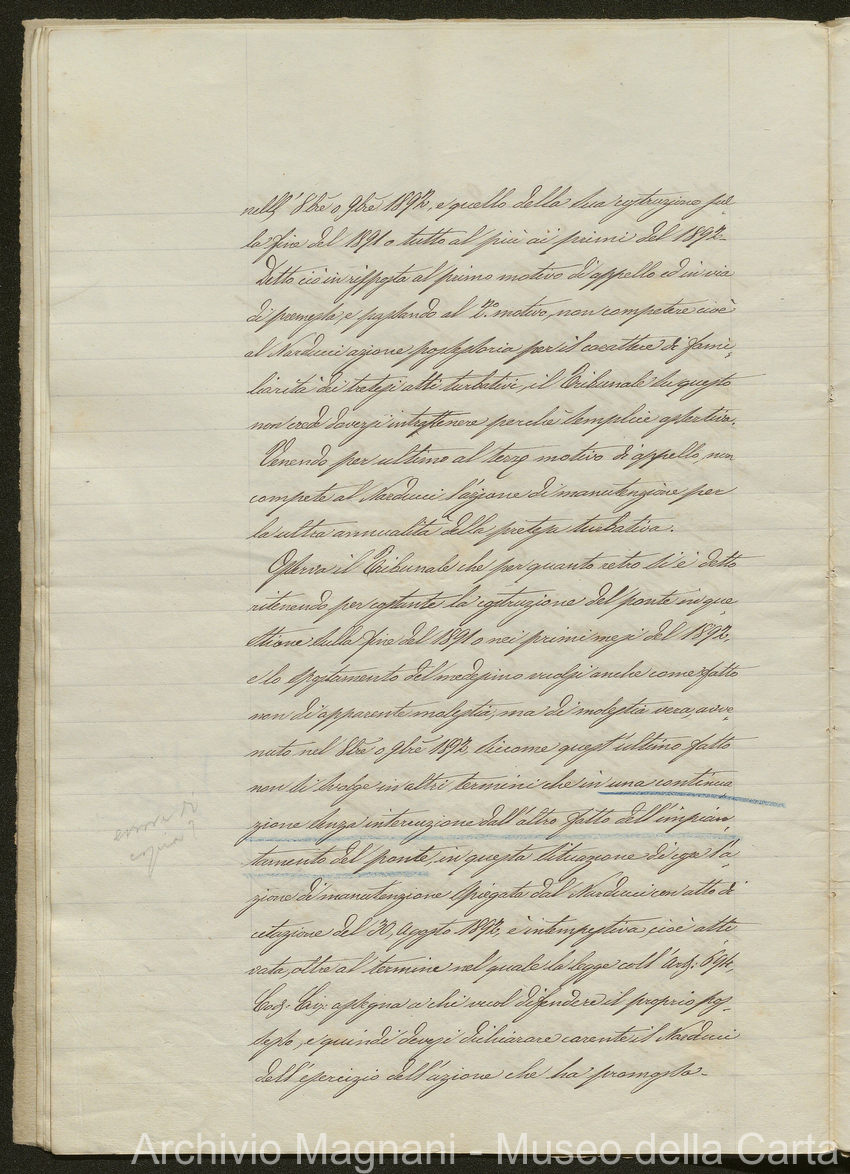 nell' 8bre o 9bre 1892, e quello della sua costruzione sul
la fine del 1891 o tutto al più ai primi del 1892.
Detto ciò in risposta al primo motivo di appello ed in via
di premessa, e passando al 2.o motivo, non competere cioè
al Narducci azione possessoria per il carattere di fami-
liarità dei pretesi atti turbativi, il Tribunale su questo
non crede doversi intrattenere perchè semplice assertiva.
Venendo per ultimo al terzo motivo di appello, non
compete al Narducci l'azione di manutenzione per
la ultra annualità della pretesa turbativa.
Osserva il Tribunale che per quanto retro si è detto
ritenendo per costante la costruzione del ponte in que
stione sulla fine del 1891 o nei primi mesi del 1892,
e lo spostamento del medesimo vuolsi anche come fatto
non di apparente molestia, ma di molestia vera, avve-
nuto nel 8bre o 9bre 1892, siccome quest'ultimo fatto
non si svolge in altri termini che in una continua
zione senza interruzione dall'altro fatto dell'impian-
tamento del ponte, in questa situazione di cose l'a
zione di manutenzione spiegata dal Narducci con atto di
citazione del 30, Agosto 1892, è intempestiva, cioè atti
vata, oltre al termine nel quale la legge coll'Art: 694,
Cod. Civ: assegna a chi vuol difendere il proprio pos-
sesso, e quindi devesi dichiarare carente il Narducci
dell'esercizio dell'azione che ha promossa.
errore di
copia?
Archivio Magnani - Museo della Carta